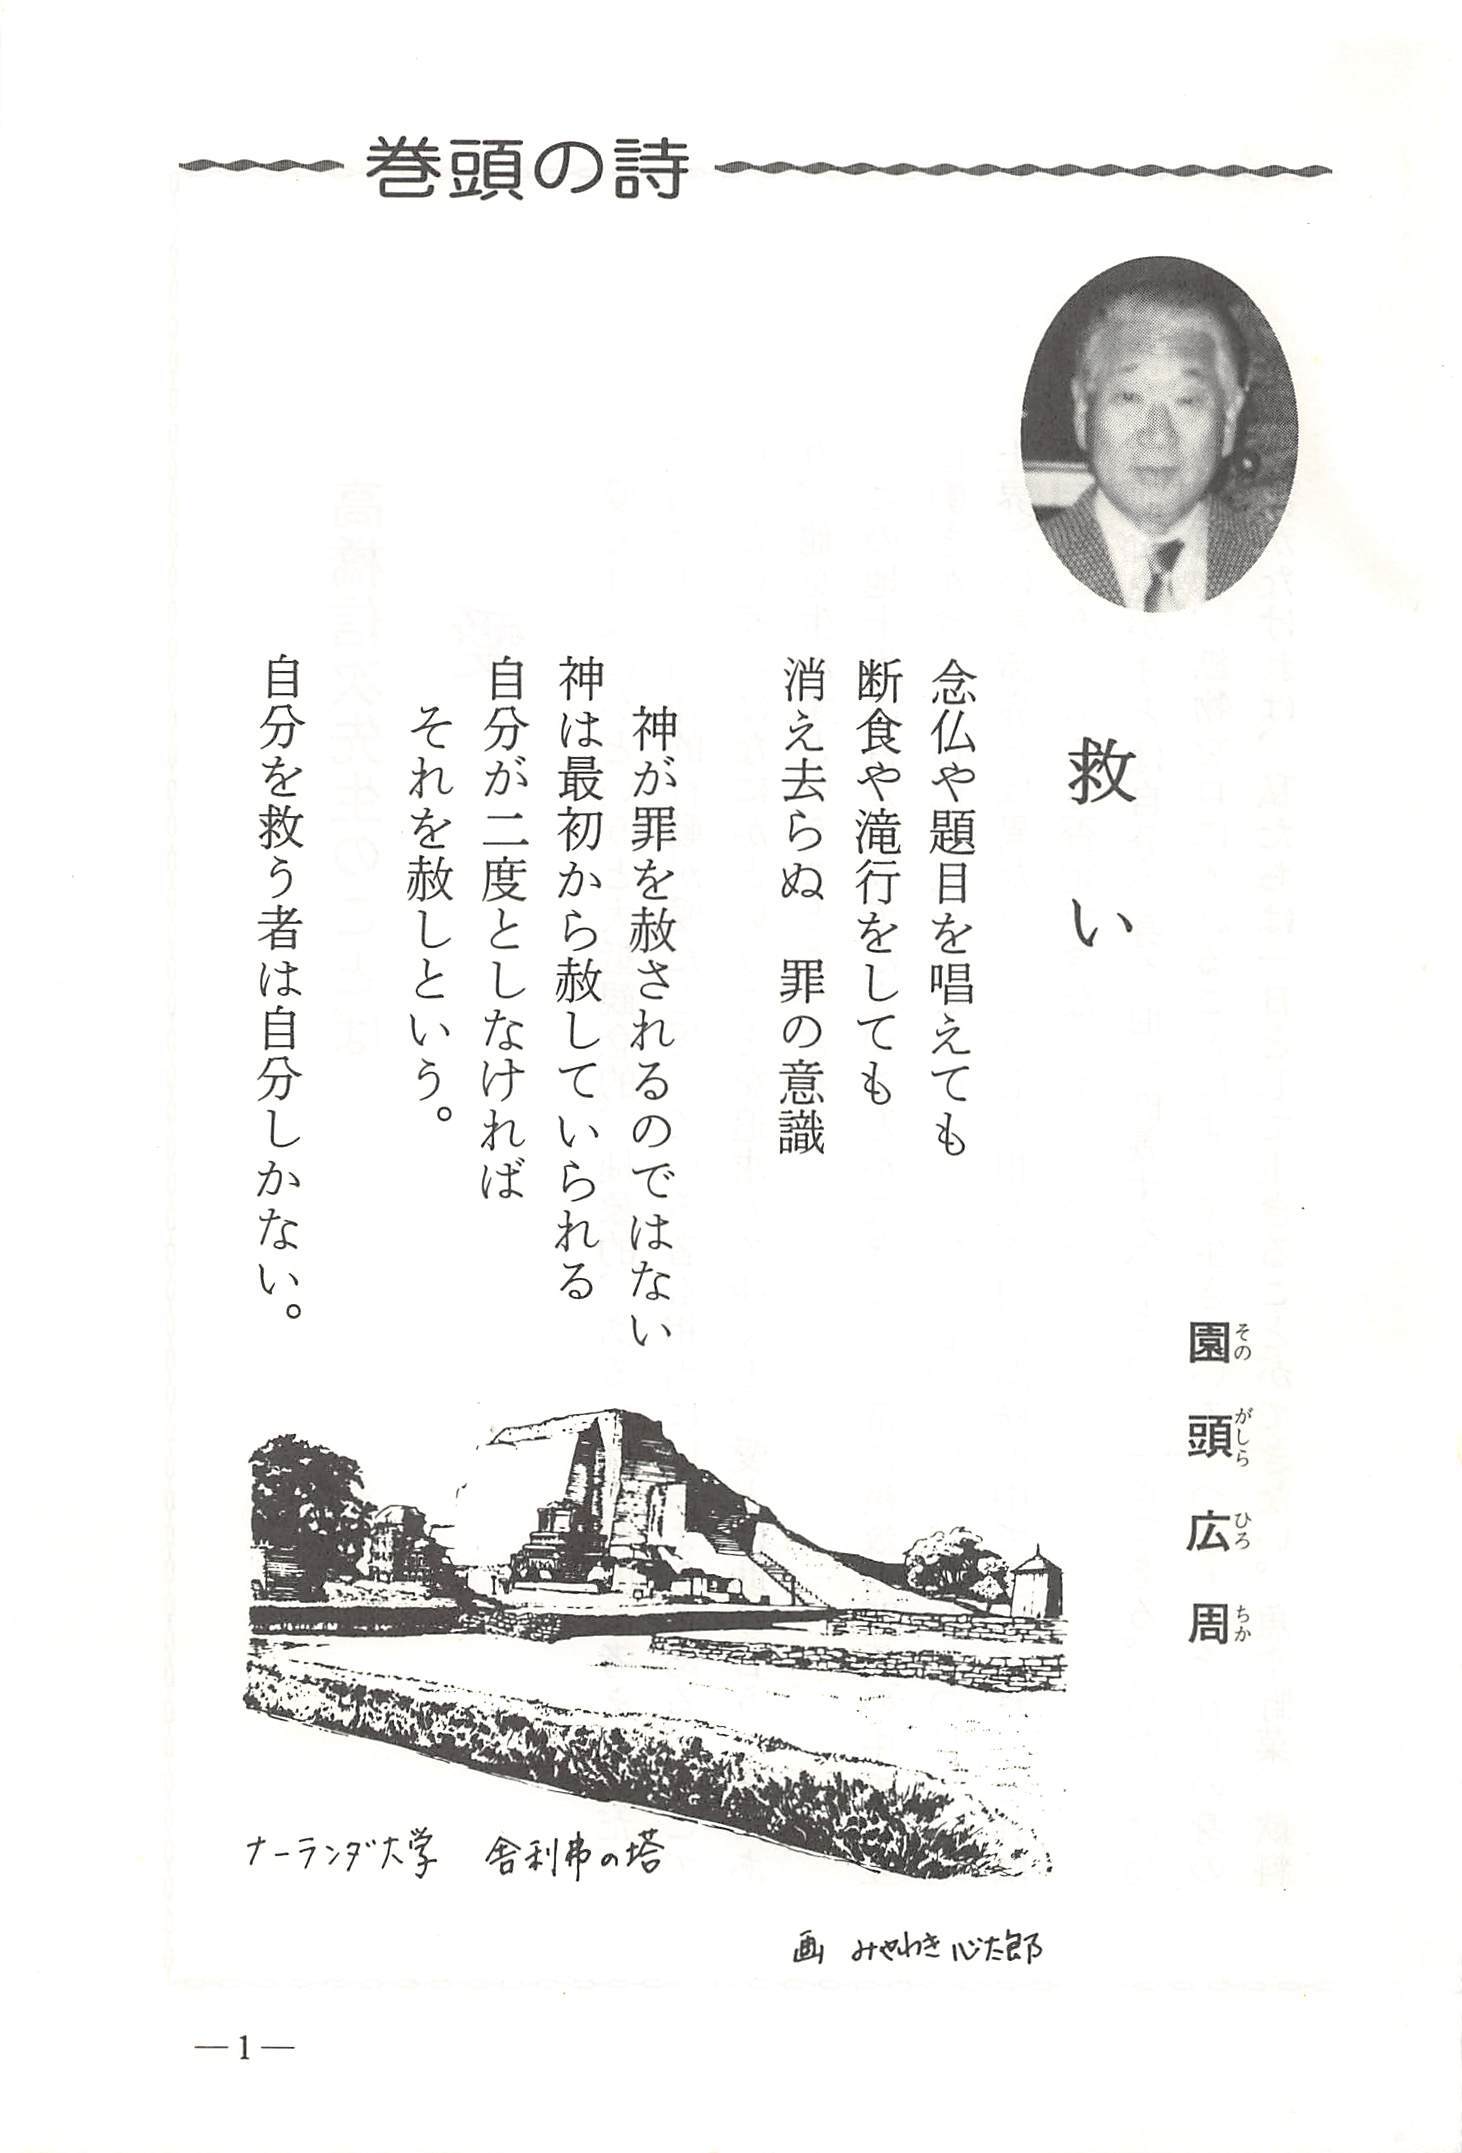 巻頭の詩
救い
園頭広周
そのがしらひろちか
念仏や題目を唱えても
断食や滝行をしても
消え去らぬ　罪の意識
神が罪を赦されるのではない
神は最初から赦していられる
自分が二度としなければ
それを赦しという。
自分を救う者は自分しかない。
ナーランダ大学　舎利弗の塔
画　みやわき心太郎
—1—